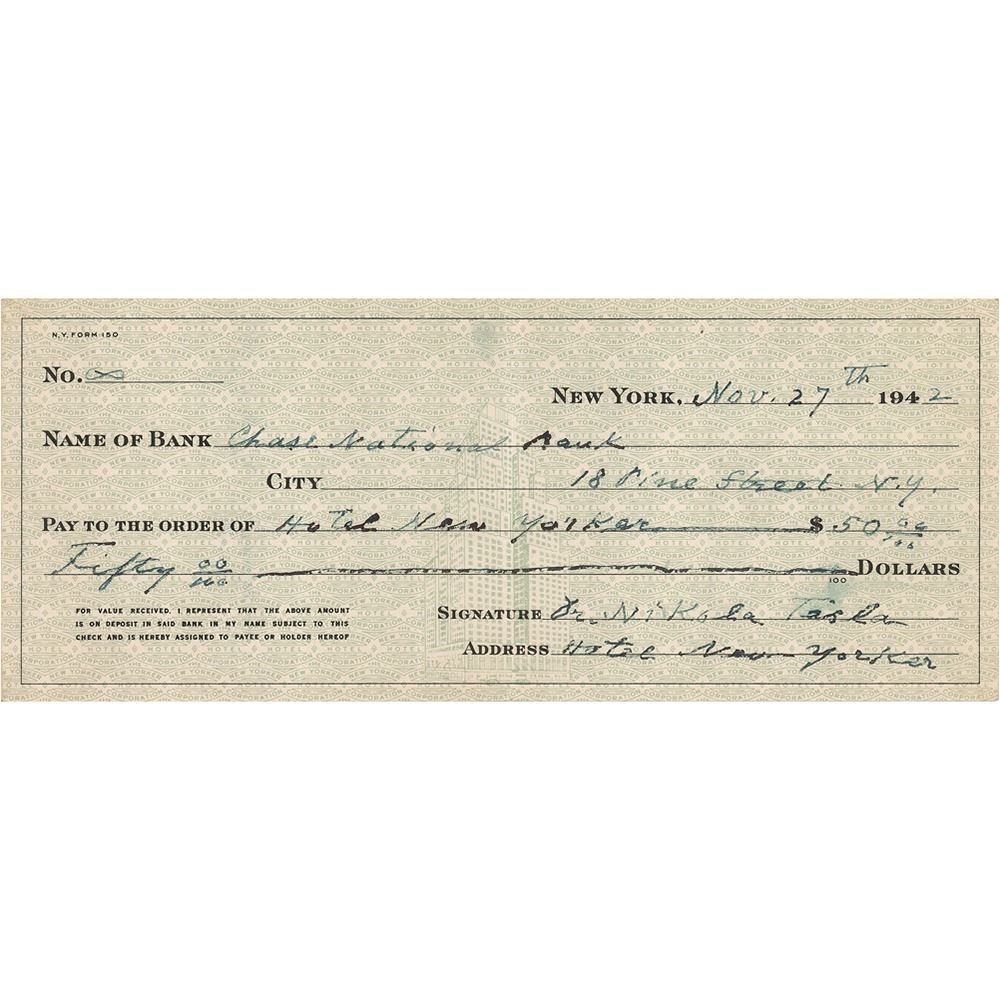 N.Y. FORM 150
No. ∞
NEW YORK, Nov. 27th 1942
NAME OF BANK Chase National Bank
CITY 18 Pine Street N.Y.
PAY TO THE ORDER OF Hotel New Yorker $ 50 00/100
Fifty 00/100 100 DOLLARS
FOR VALUE RECEIVED, I REPRESENT THAT THE ABOVE AMOUNT
IS ON DEPOSIT IN SAID BANK IN MY NAME SUBJECT TO THIS
CHECK AND IS HEREBY ASSIGNED TO PAYEE OR HOLDER HEREOF
SIGNATURE Dr. Nikola Tesla
ADDRESS Hotel New Yorker